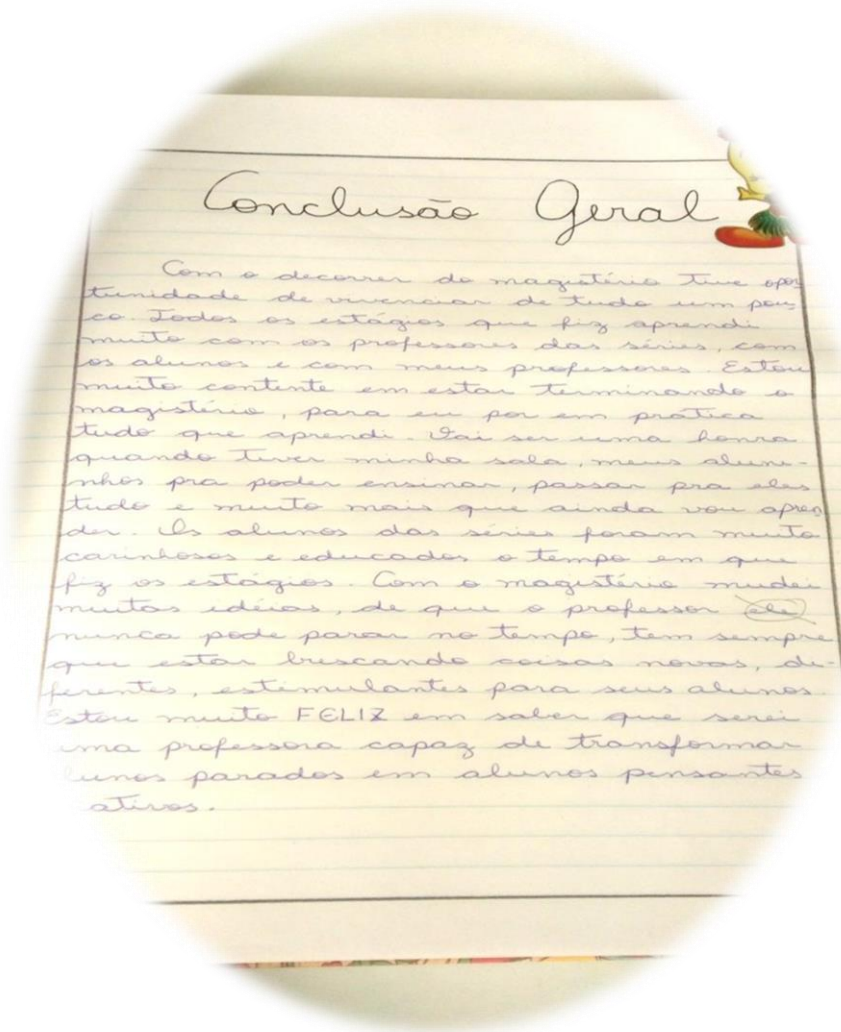 Conclusão Geral
Com o decorrer do magistério tive opor
tunidade de vivenciar de tudo um pou-
co. Todos os estágios que fiz aprendi
muito com os professores das séries, com
os alunos e com meus professores. Estou
muito contente em estar terminando o
magistério, para eu por em prática
tudo que aprendi. Vai ser uma honra
quando tiver minha sala, meus aluni-
nhos pra poder ensinar, passar pra eles
tudo e muito mais que ainda vou apren
der. Os alunos das séries foram muito
carinhosos e educados o tempo em que
fiz os estágios. Com o magistério mudei
muitas idéias, de que o professor ele
nunca pode parar no tempo, tem sempre
que estar buscando coisas novas, di-
ferentes, estimulantes para seus alunos.
Estou muito FELIZ em saber que serei
uma professora capaz de transformar
lunos parados em alunos pensantes
ativos.